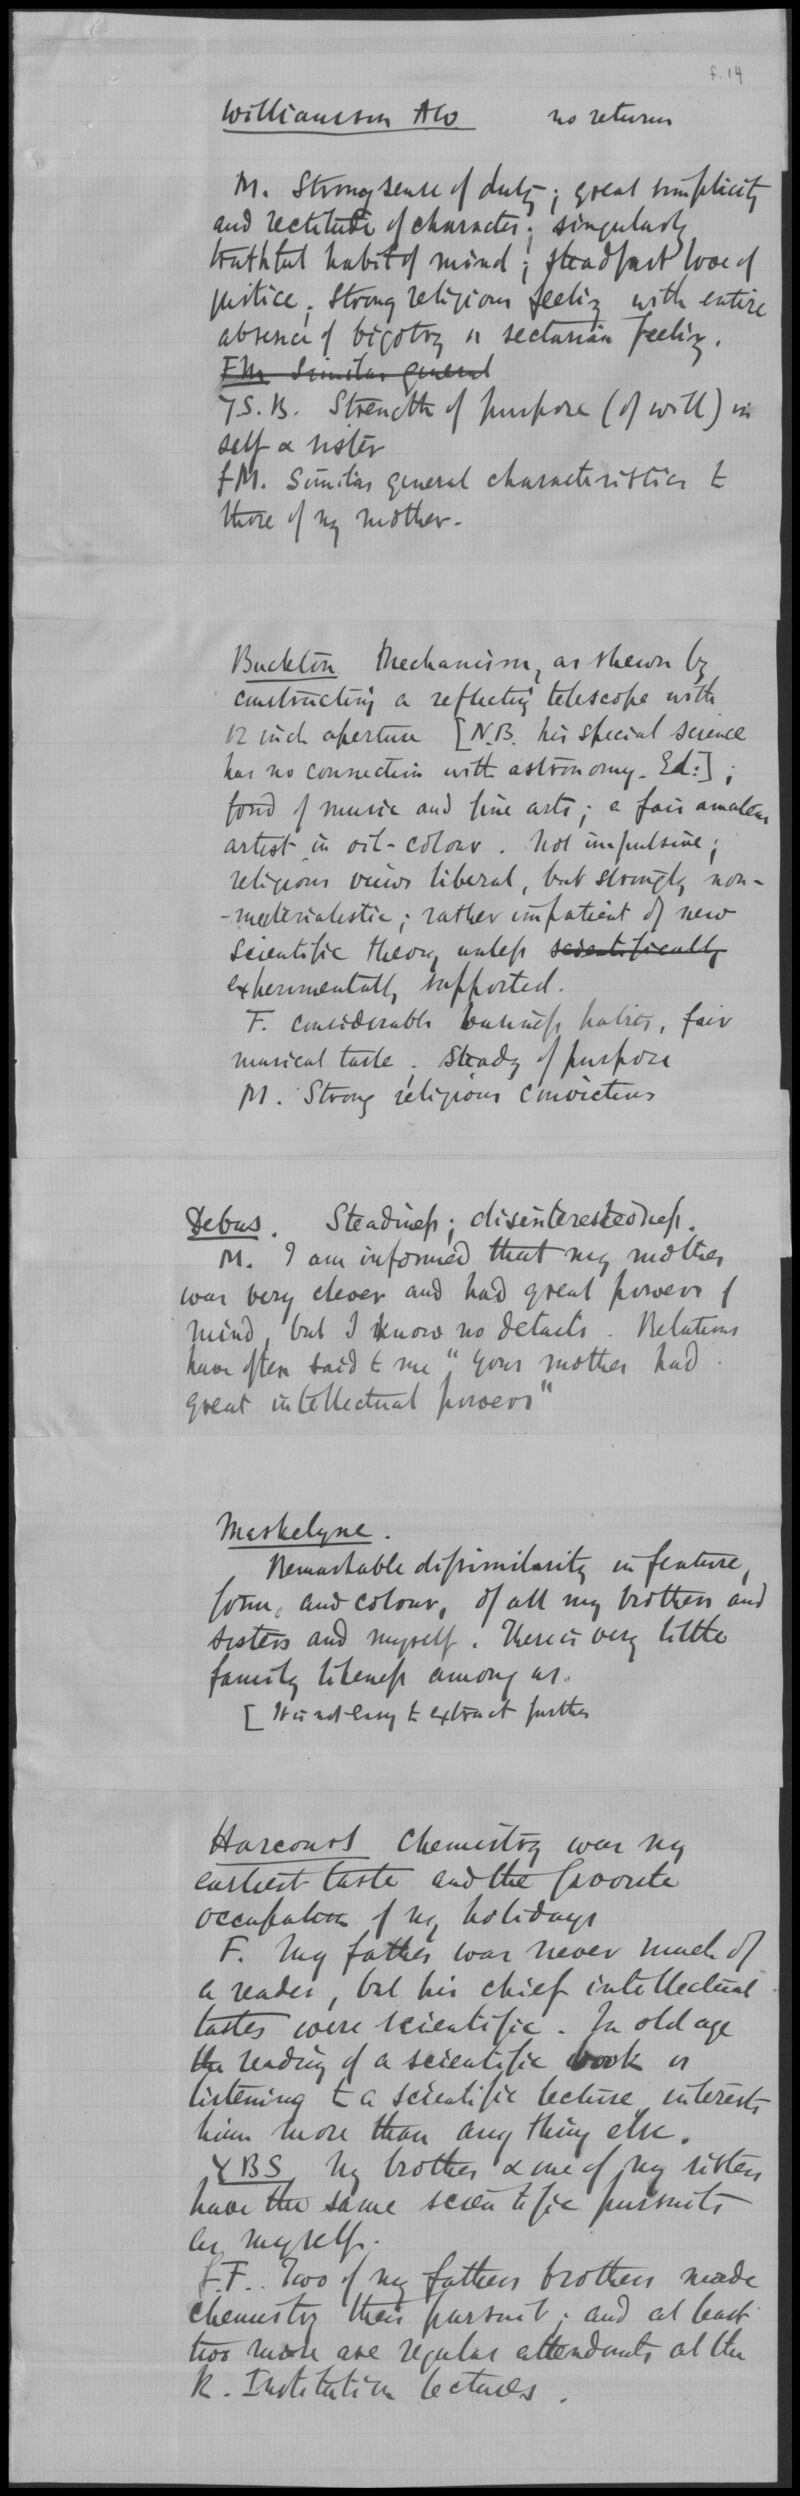 f. 14
Williamson AW no return
M. Strong sense of duty; great simplicity
and rectitude of character; singularly
truthful habit of mind; steadfast love of
justice; strong religious feeling with entire
absence of bigotry or sectarian feeling.
FM Similar general
S.B. Strength of purpose (of will) in
self & sister
fM. Similar general characteristics to
those of my mother.
Buckton Mechanism, as shewn by
constructing a reflecting telescope with
12 inch aperture [N.B. his special science
has no connection with astronomy - Ed:];
fond of music and fine arts; a fair amateur
artist in oil-colour. Not impulsive;
religious views liberal, but strongly non-
-materialistic; rather impatient of new
scientific theory unless scientifically
experimentally supported.
F. considerable business habits, fair
musical taste; steady of purpose
M. Strong religious convictions
Debus. Steadiness; disinterestedness.
M. I am informed that my mother
was very clever and had great powers of
mind, but I know no details. Relations
have often said to me "your mother had
great intellectual powers"
Maskelyne.
Remarkable dissimilarity in feature,
form, and colour, of all my brothers and
sisters and myself. There is very little
family likeness among us.
[It is not easy to extract further
Harcourt Chemistry was my
earliest taste and the favorite
occupation of my holidays
F. My father was never much of
a reader, but his chief intellectual
tastes were scientific. In old age
the reading of a scientific book or
listening to a scientific lecture interests
him more than any thing else.
BS My brother & one of my sisters
have the same scientific pursuits
as myself.
f.F. Two of my fathers brothers made
chemistry their pursuit; and at least
two more are regular attendants at the
R. Institution lectures.